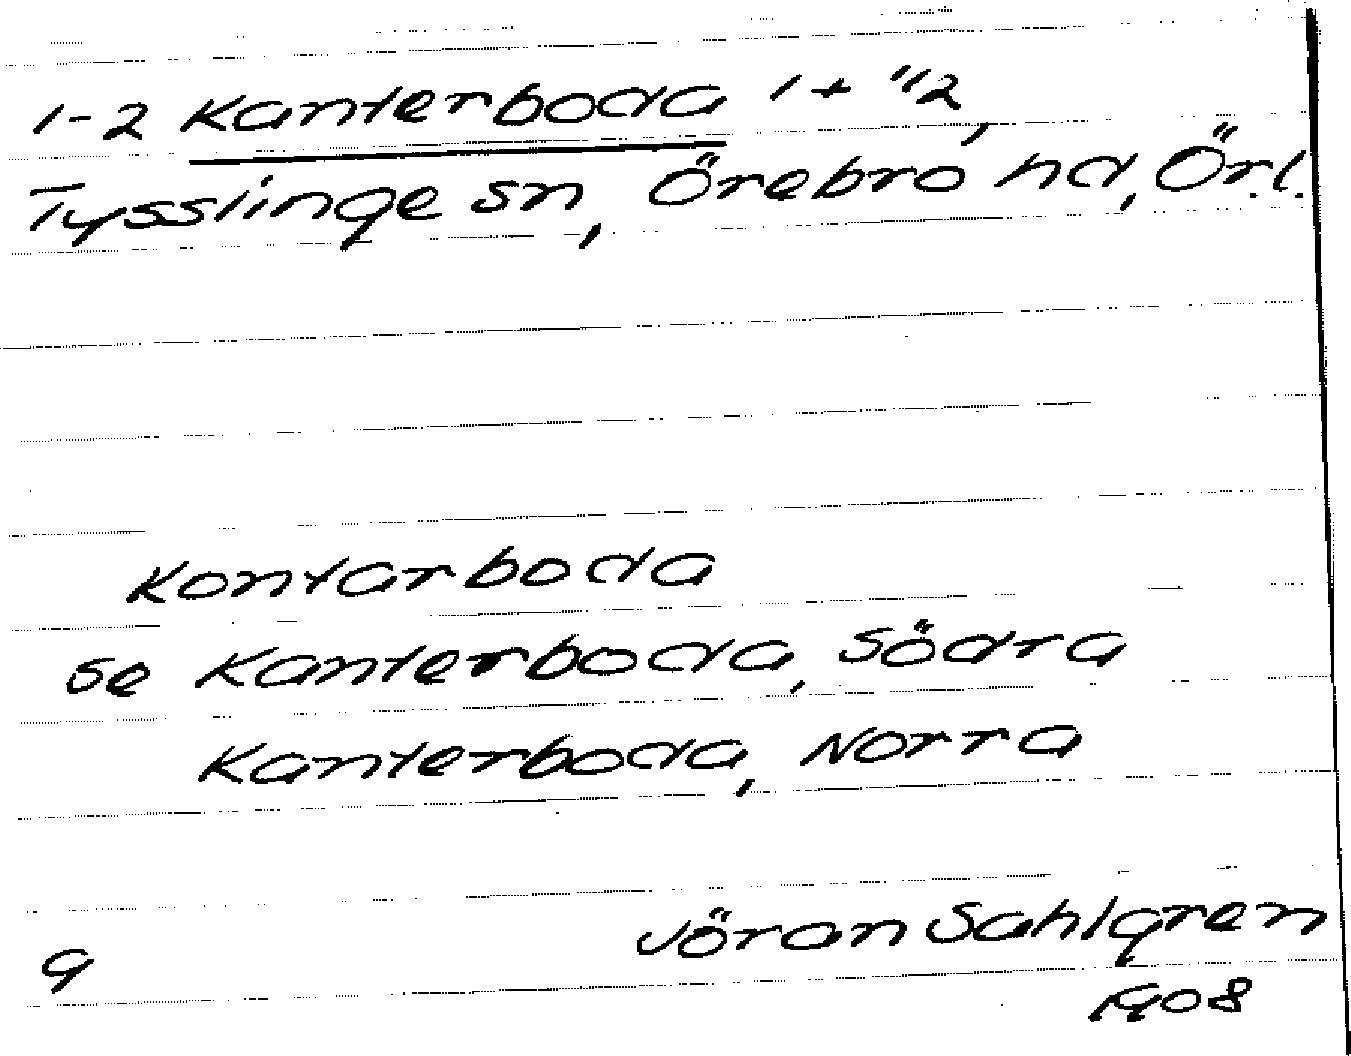 1-2 Kanterboda 1 + "/2,
Tysslinge sn, Örebro hd, Ör.l.
Kontarboda
se Kanterboda, Södra
Kanterboda, Norra
9 Jöran Sahlgren
1908